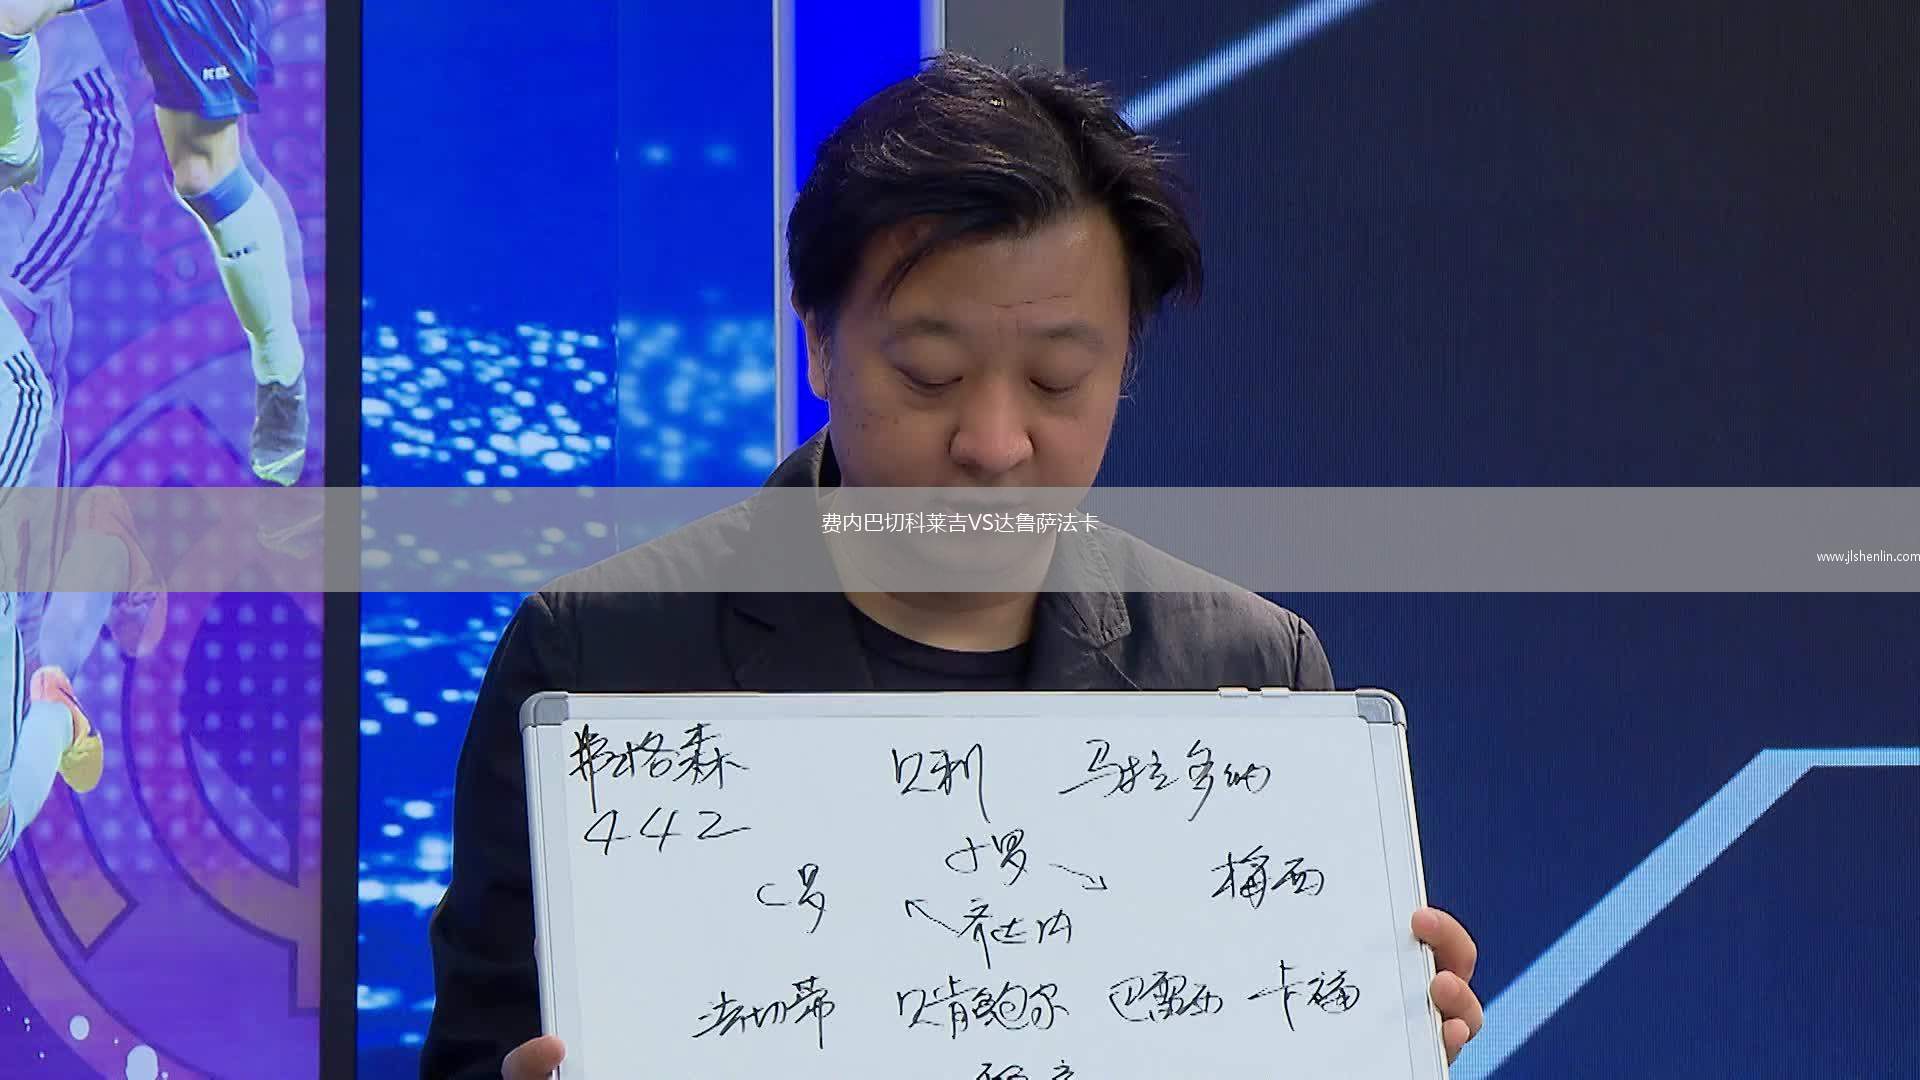 费内巴切科莱吉VS达鲁萨法卡
www.jlshenlin.com
弗格森 贝利 马拉多纳
442
小罗
C罗 梅西
齐达内
法切蒂 贝肯鲍尔 巴雷西 卡福